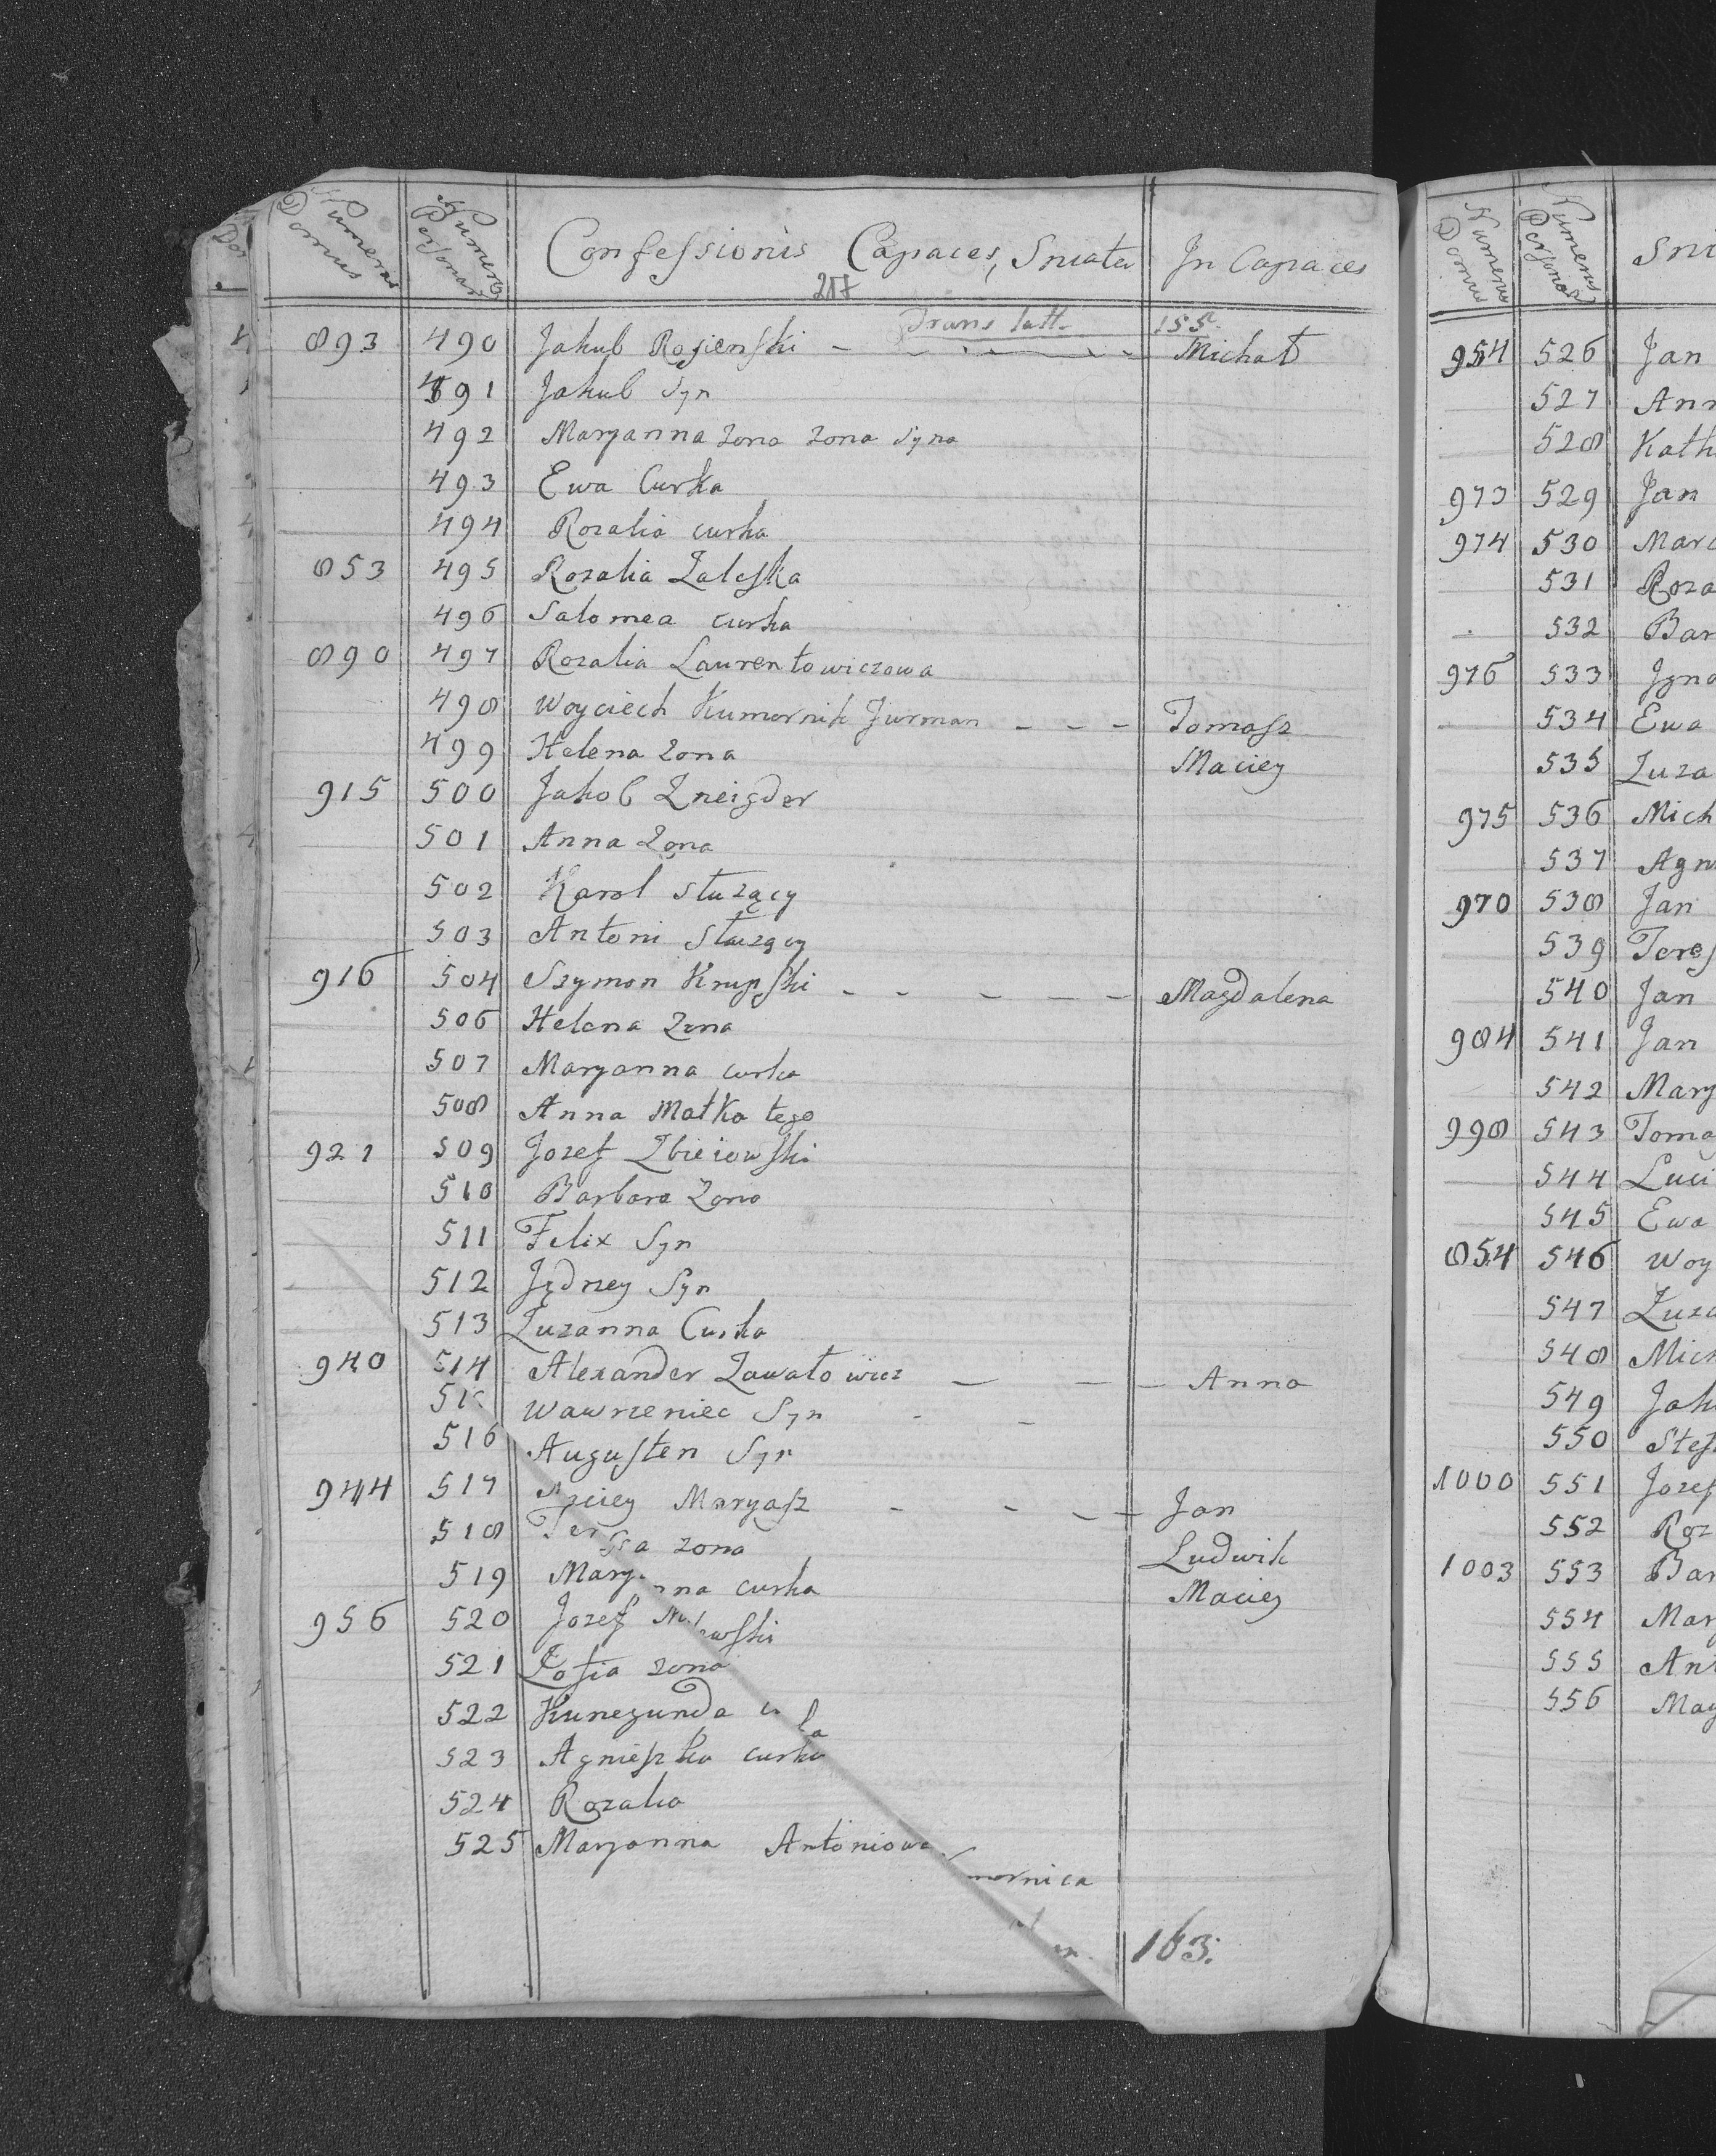 Numerus Domus Numerus Personar Confessionis Capaces, Sniata In Capaces
217
Trans latt. 155.
893 490 Jakub Rosienski - - - - Michał
491 Jakub Syn
492 Maryanna zona zona syna
493 Ewa Curka
494 Rozalia curka
853 495 Rozalia Zaleska
496 Salomea curka
890 497 Rozalia Laurentowiczowa
498 Woyciech Kumornik Furman - - - Tomasz
499 Helena zona Maciey
915 500 Jakob Zneigder
501 Anna Zona
502 Karol służący
503 Antoni służący
916 504 Szymon Krupski - - - - - Magdalena
506 Helena Zona
507 Maryanna curka
508 Anna Matka tego
921 509 Jozef Zbieiowski
510 Barbara Zona
511 Felix Syn
512 Jędrzey Syn
513 Zuzanna Curka
940 514 Alexander Zawałowicz - - - Anna
51 Wawrzeniec Syn - -
516 Augusten Syn
944 517 Maryasz - - - - Jan
518 zona Ludwik
519 curka Maciey
956 520 Jozef
521 Zofia zona
522 Kunegunda
523 Agnieszka curka
524 Rozalia
525 Maryanna Antoniowa
163.
Numerus Domus Numerus Personar Sni
954 526 Jan
527 Ann
528 Kath
973 529 Jan
974 530 Marc
531 Roza
532 Bar
976 533 Igna
534 Ewa
535 Zuza
975 536 Mich
537 Agn
970 538 Jan
539 Teres
540 Jan
984 541 Jan
542 Mary
998 543 Toma
544 Luci
545 Ewa
854 546 Woy
547 Zuza
548 Mich
549 Jak
550 Stef
1000 551 Jozef
552 Roz
1003 553 Bar
554 Mary
555 Ant
556 Mag